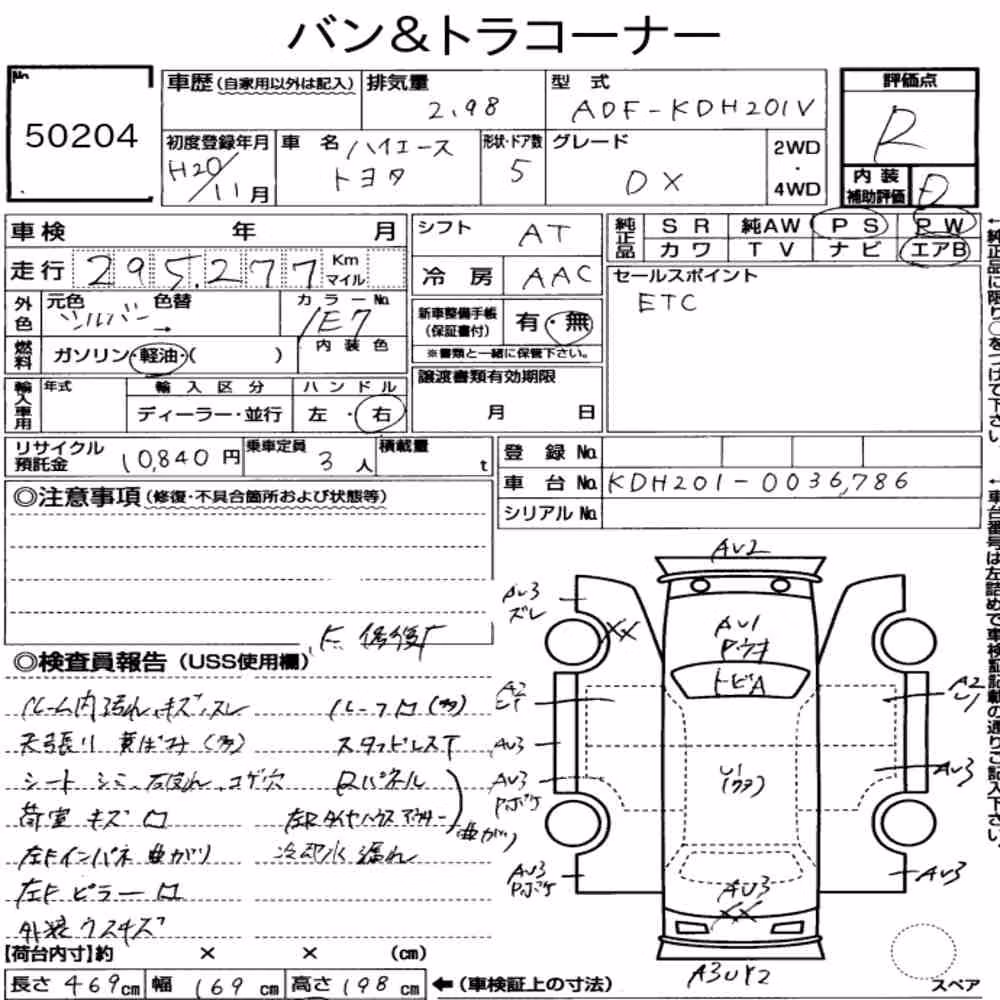 バン&トラコーナー
No.
50204
車歴(自家用以外は記入)
排気量
2.98
型式
ADF-KDH201V
評価点
R
初度登録年月
H20/11月
車名
ハイエース
トヨタ
形状・ドア数
5
グレード
DX
2WD
・
4WD
内装
補助評価
D
車検 年 月
走行 295,277 Km マイル
外色
元色
シルバー
色替
→
カラーNo.
1E7
内装色
燃料
ガソリン・軽油・( )
輸入車用
年式
輸入区分
ディーラー・並行
ハンドル
左・右
シフト
AT
冷房
AAC
新車整備手帳
(保証書付)
有・無
※書類と一緒に保管下さい。
譲渡書類有効期限
月 日
純正品
SR 純AW PS PW
カワ TV ナビ エアB
セールスポイント
ETC
←純正品に限り○をつけて下さい。
リサイクル
預託金
10,840円
乗車定員
3人
積載量
t
登録No.
車台No. KDH201-0036,786
シリアルNo.
←車台番号は左詰めで車検証記載の通りご記入下さい。
◎注意事項(修復・不具合箇所および状態等)
◎検査員報告(USS使用欄)
ルーム内汚れ、キズ、スレ
天張り 黄ばみ(多)
シート シミ、コゲ穴
荷室 キズ
左Fインパネ 曲がり
左Fピラー
外装ウスキズ
スタッドレスT
Rパネル
曲がり
冷却水漏れ
AV2
AV3
ズレ
XX
AV1
トビA
A2
A2
U1
AV3
U1
AV3
AV3
AV3
AV3
AV3
XX
A3UY2
【荷台内寸】約 × × (cm)
長さ 469cm 幅 169cm 高さ 198cm ←(車検証上の寸法)
スペア